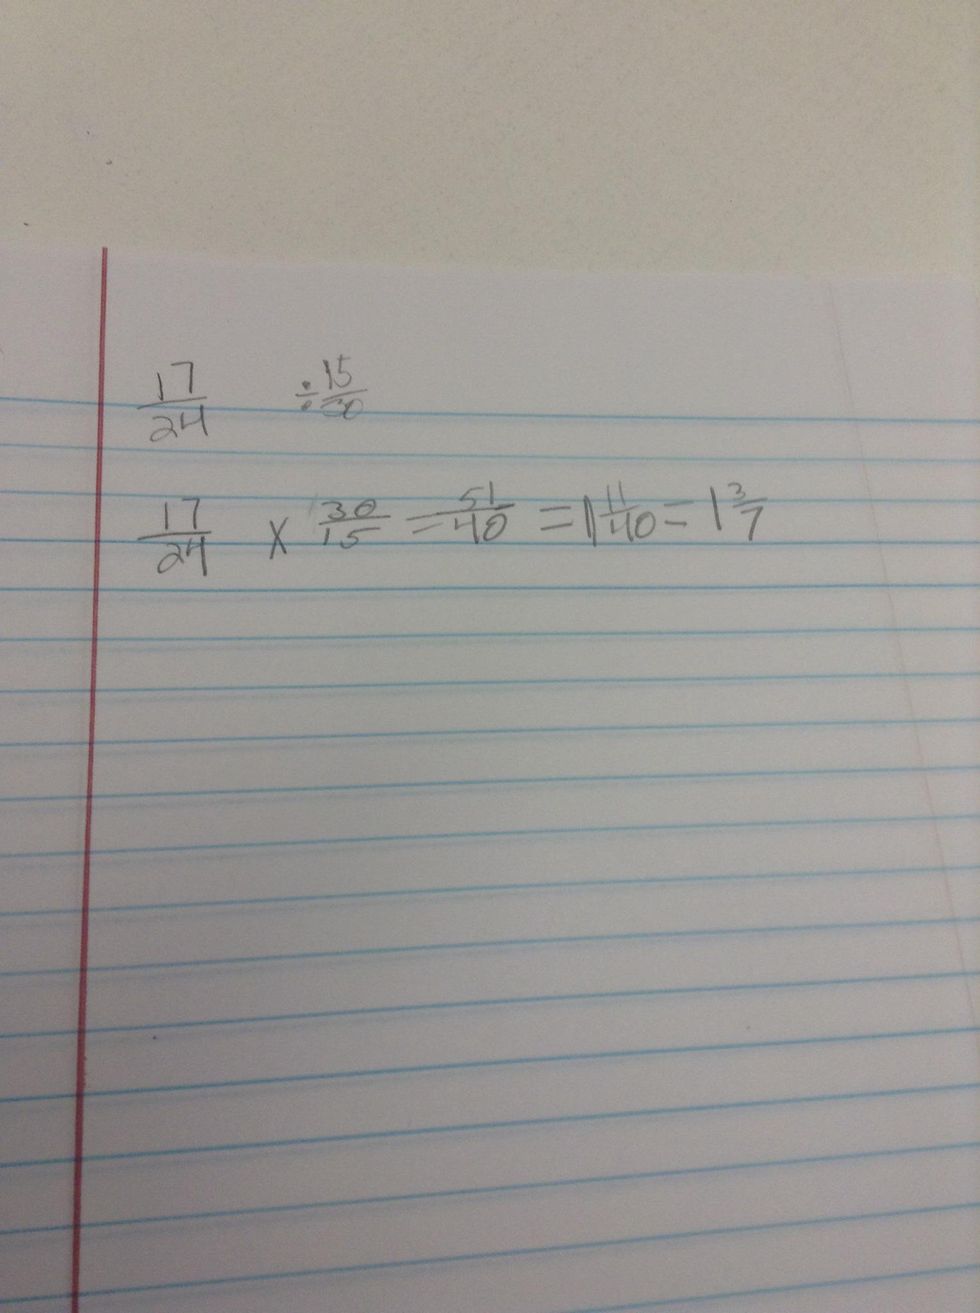 17/24 ÷ 15/30
17/24 x 30/15 = 51/40 = 1 11/40 = 1 3/7